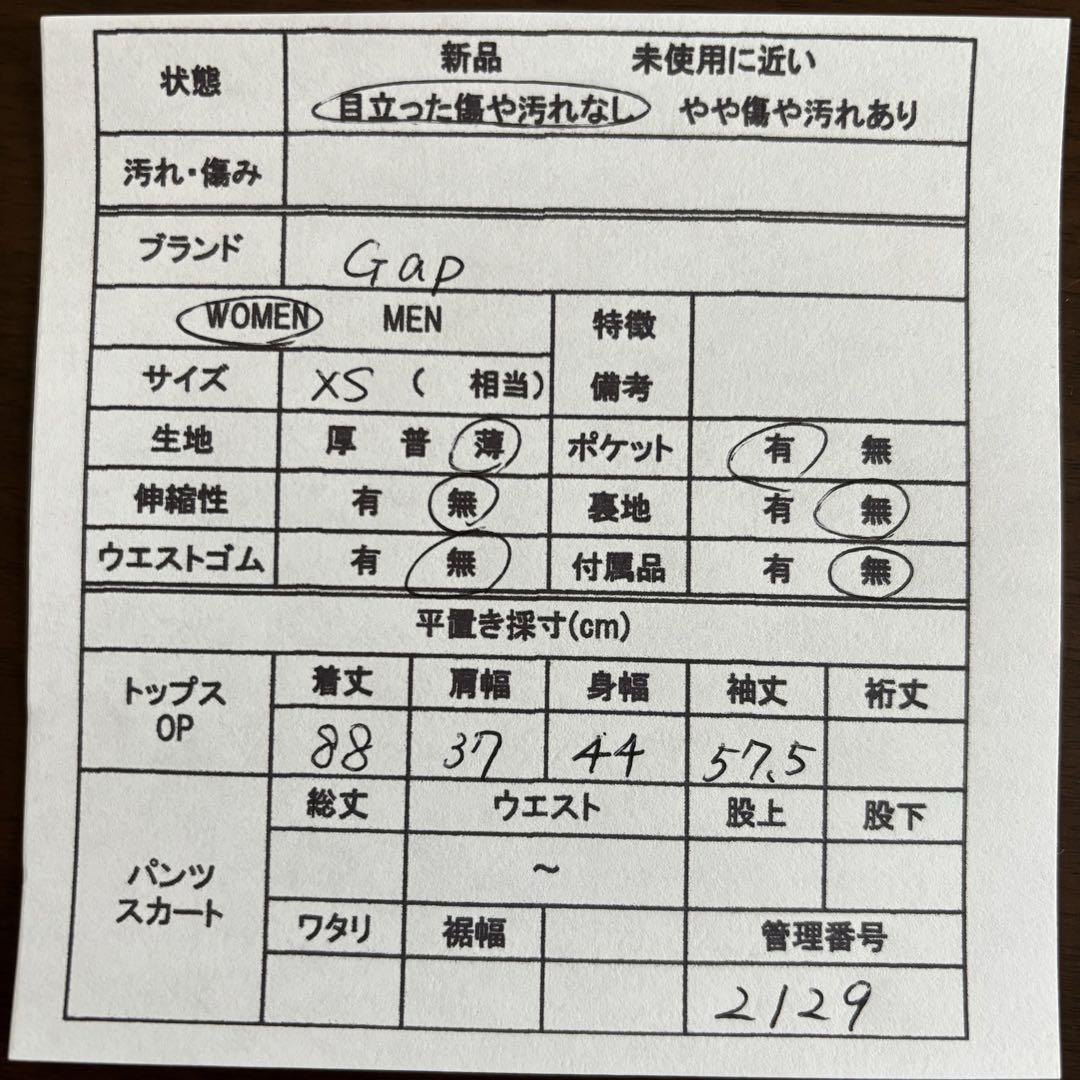 状態 新品 未使用に近い
目立った傷や汚れなし やや傷や汚れあり
汚れ・傷み
ブランド Gap
WOMEN MEN 特徴
サイズ XS ( 相当) 備考
生地 厚 普 薄 ポケット 有 無
伸縮性 有 無 裏地 有 無
ウエストゴム 有 無 付属品 有 無
平置き採寸(cm)
トップス 着丈 肩幅 身幅 袖丈 裄丈
OP 88 37 44 57.5
総丈 ウエスト 股上 股下
パンツ ~
スカート ワタリ 裾幅 管理番号
2129